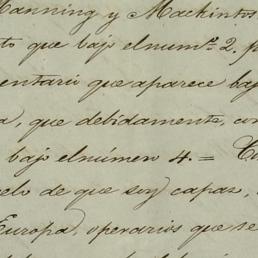 Manning y Mackintos
to que bajo el num.º 2. p
entarii que aparece baj
a, que debidamente, con
bajo el número 4. = Co
celo de que soy capaz,
Europa, operarios que se